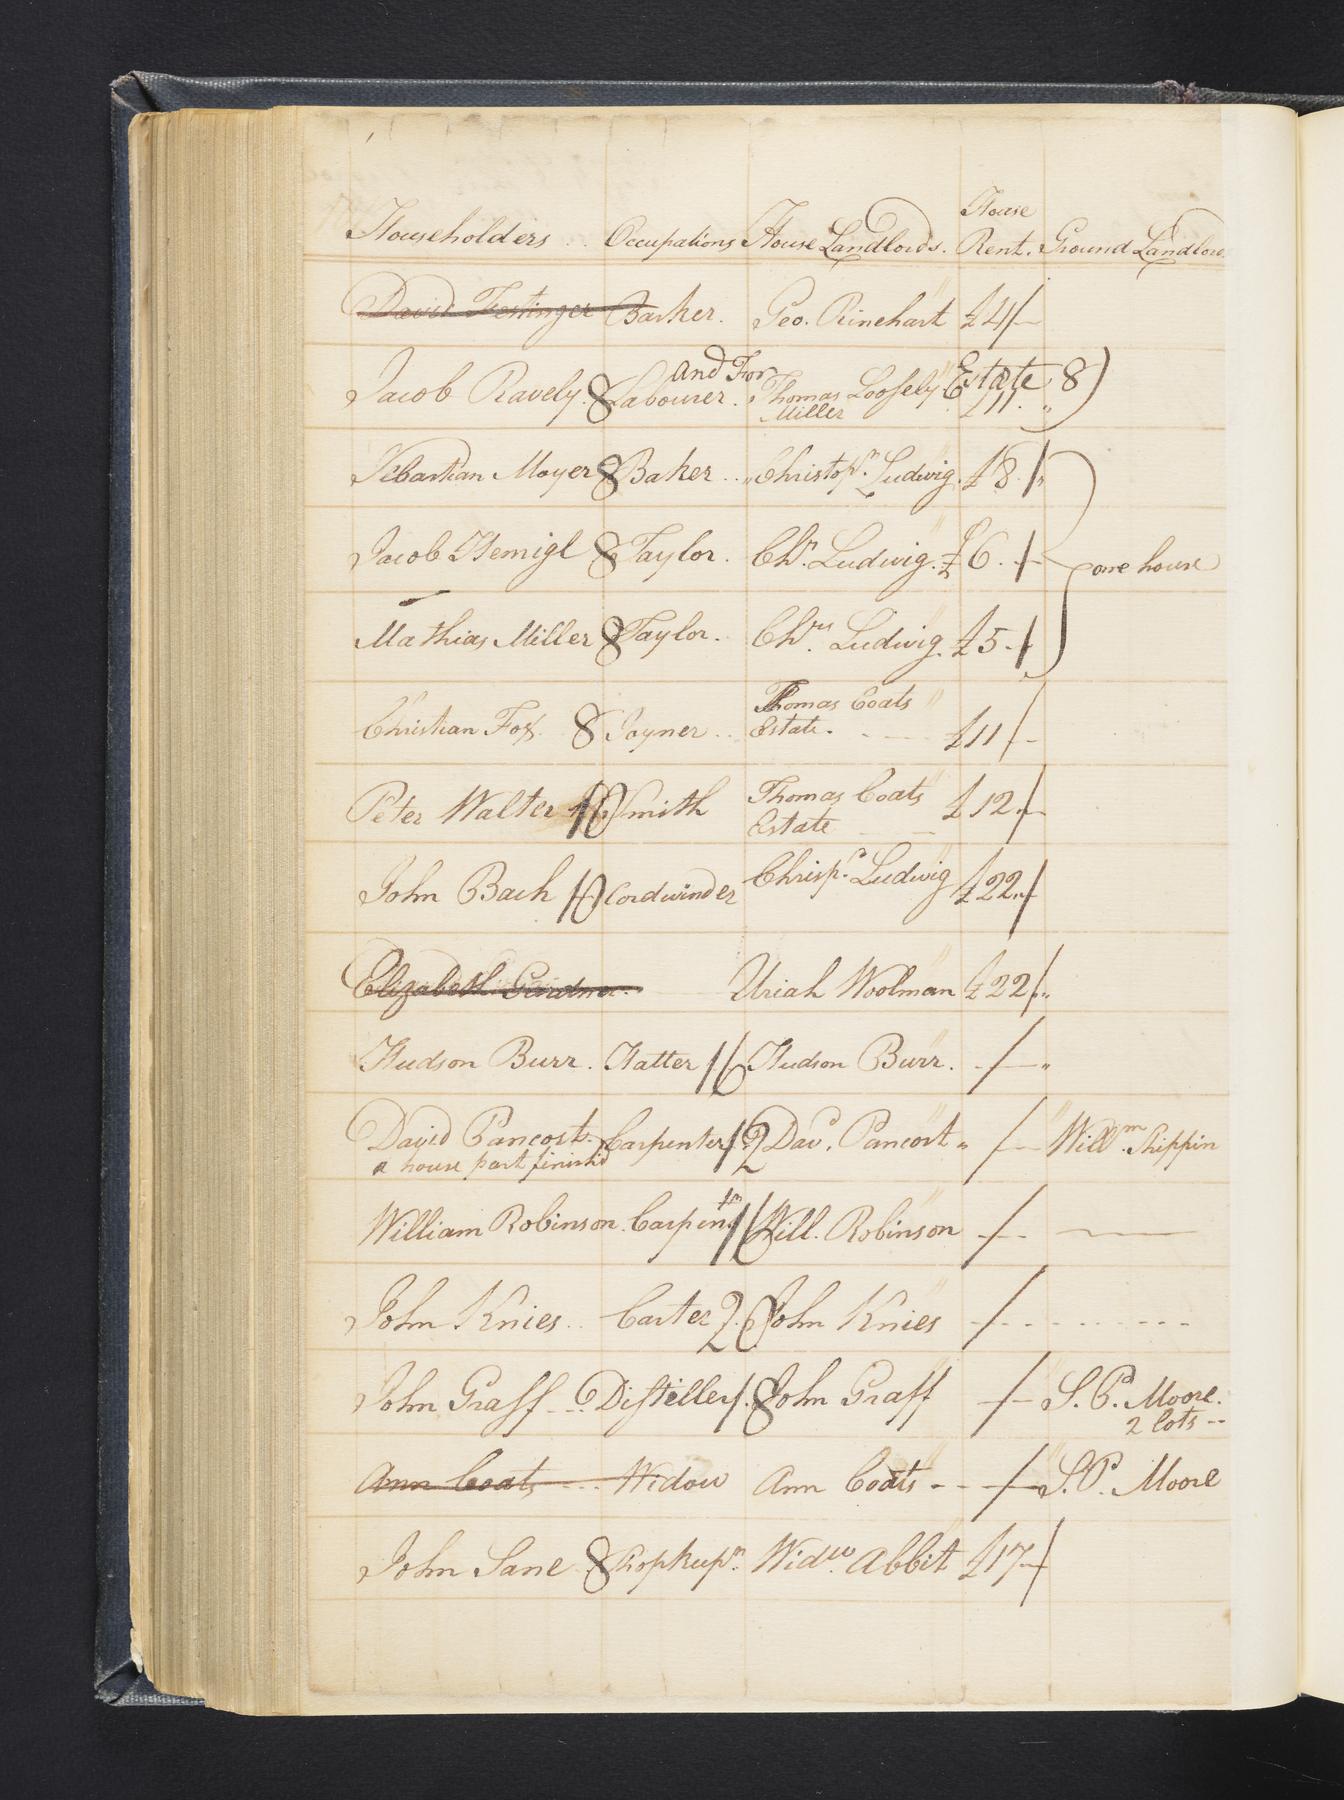 House
Householders .. Occupations House Landlords. Rent. Ground Landlor
David Festinger Barker. Geo. Rinehart £4/-
and For Estate 8)
Jacob Ravely. 8 Labourer. Thomas Loosely £11.
Miller
Sebastian Moyer 8 Baker .. Christopr. Ludwig. £8./
Jacob Hemigl 8 Taylor. Chr. Ludwig. £6.-/- one house
Mathias Miller 8 Taylor. Chrs. Ludwig. £5-/
Thomas Coats
Christian Fox 8 Joyner .. Estate. £11/-
Peter Walter 10 Smith Thomas Coats £12/-
Estate
John Bach 10 Cordwinder Chrisr. Ludwig £22/
Elizabeth Gardner Uriah Woolman £22/
Hudson Burr. Hatter 16 Hudson Burr. -/-
David Pancost. Carpenter 12 Davd. Pancost /- Willm. Shippin
a house part finish'd
William Robinson. Carpintr 16 Will. Robinson -/-
John Knies .. Carter 20 John Knies -/-
John Graff ... Distiller 18 John Graff -/- S. P. Moore.
2 lots --
Ann Coats ... Widow Ann Coats - - -/- S. P. Moore
John Lane 8 Shopkeepr. Widw. Abbit £17-/